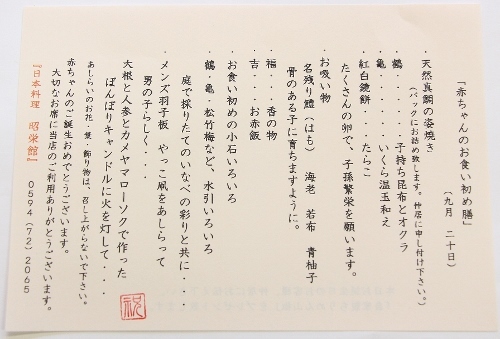 「赤ちゃんのお食い初め膳」
（九月　二十日）
・天然真鯛の姿焼き
（パックにお詰め致します。仲居に申し付け下さい。）
・鶴・・・・子持ち昆布とオクラ
・亀・・・・いくら温玉和え
・紅白鏡餅・・・たらこ
たくさんの卵で、子孫繁栄を願います。
・お吸い物
名残り鱧（はも）　海老　若布　青柚子
骨のある子に育ちますように。
・福・・・香の物
・吉・・・お赤飯
・お食い初めの小石いろいろ
鶴・亀・松竹梅など、水引いろいろ
庭で採りたてのいなべの彩りと共に・・・・
・メンズ羽子板　やっこ凧をあしらって
男の子らしく・・・
大根と人参とカメヤマローソクで作った
ぼんぼりキャンドルに火を灯して・・・・
あしらいのお花、葉、飾り物は、召し上がらないで下さい。
赤ちゃんのご誕生おめでとうございます。
大切なお席に当店のご利用ありがとうございます。
『日本料理　昭栄館』　0594（72）2065
祝